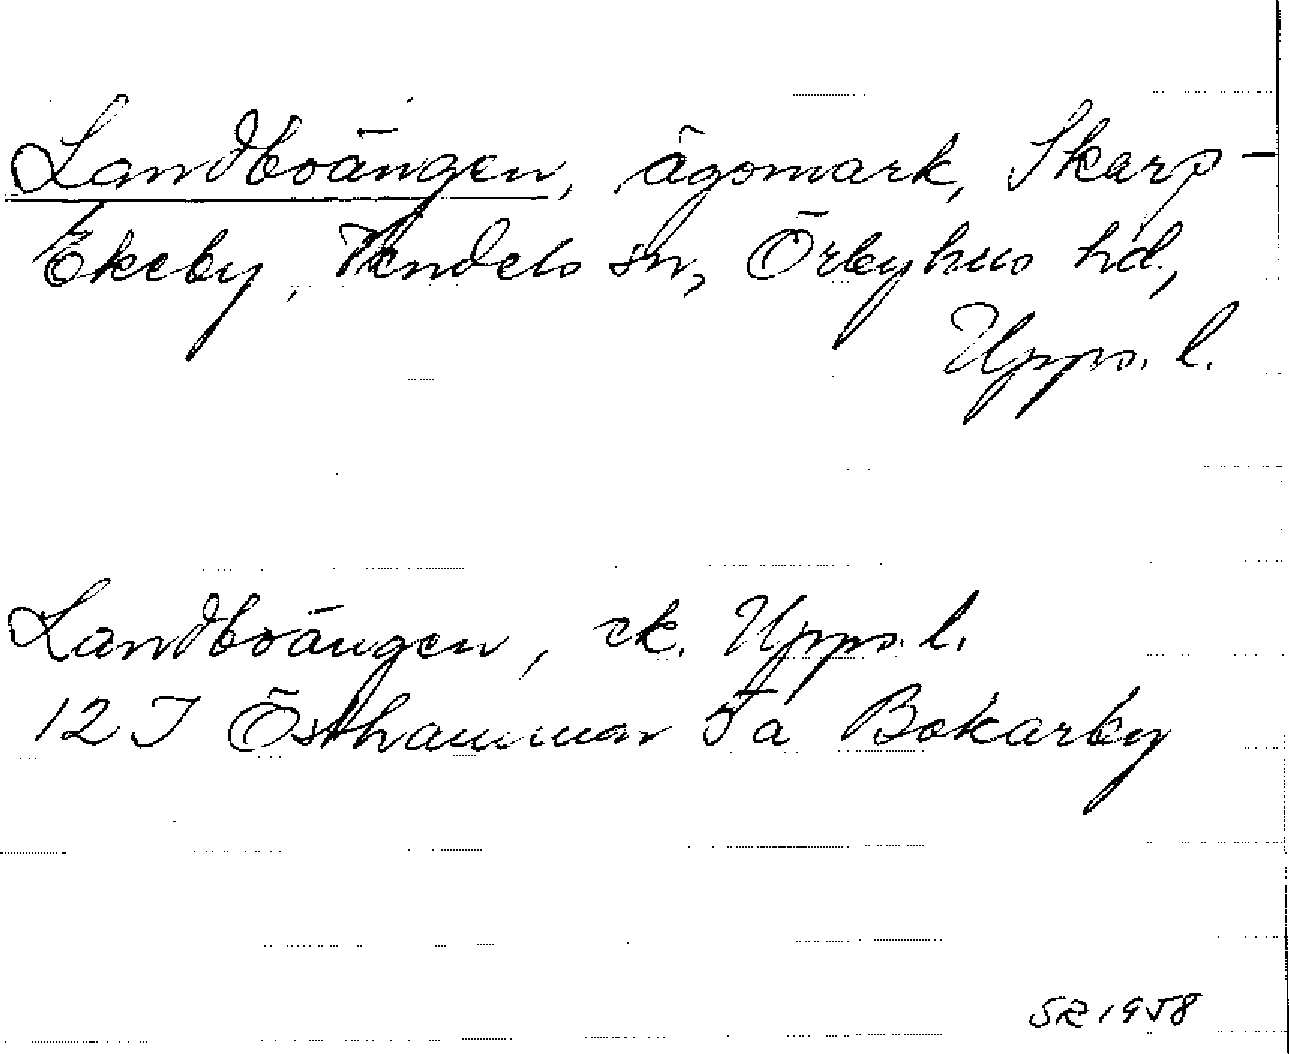 Landboängen, ägomark, Skarp-
Ekeby, Vendels sn, Örbyhus hd,
Upps. l.
Landboängen, ek. Upps. l.
12 I Östhammar 5 a Bokarby
SR 1958